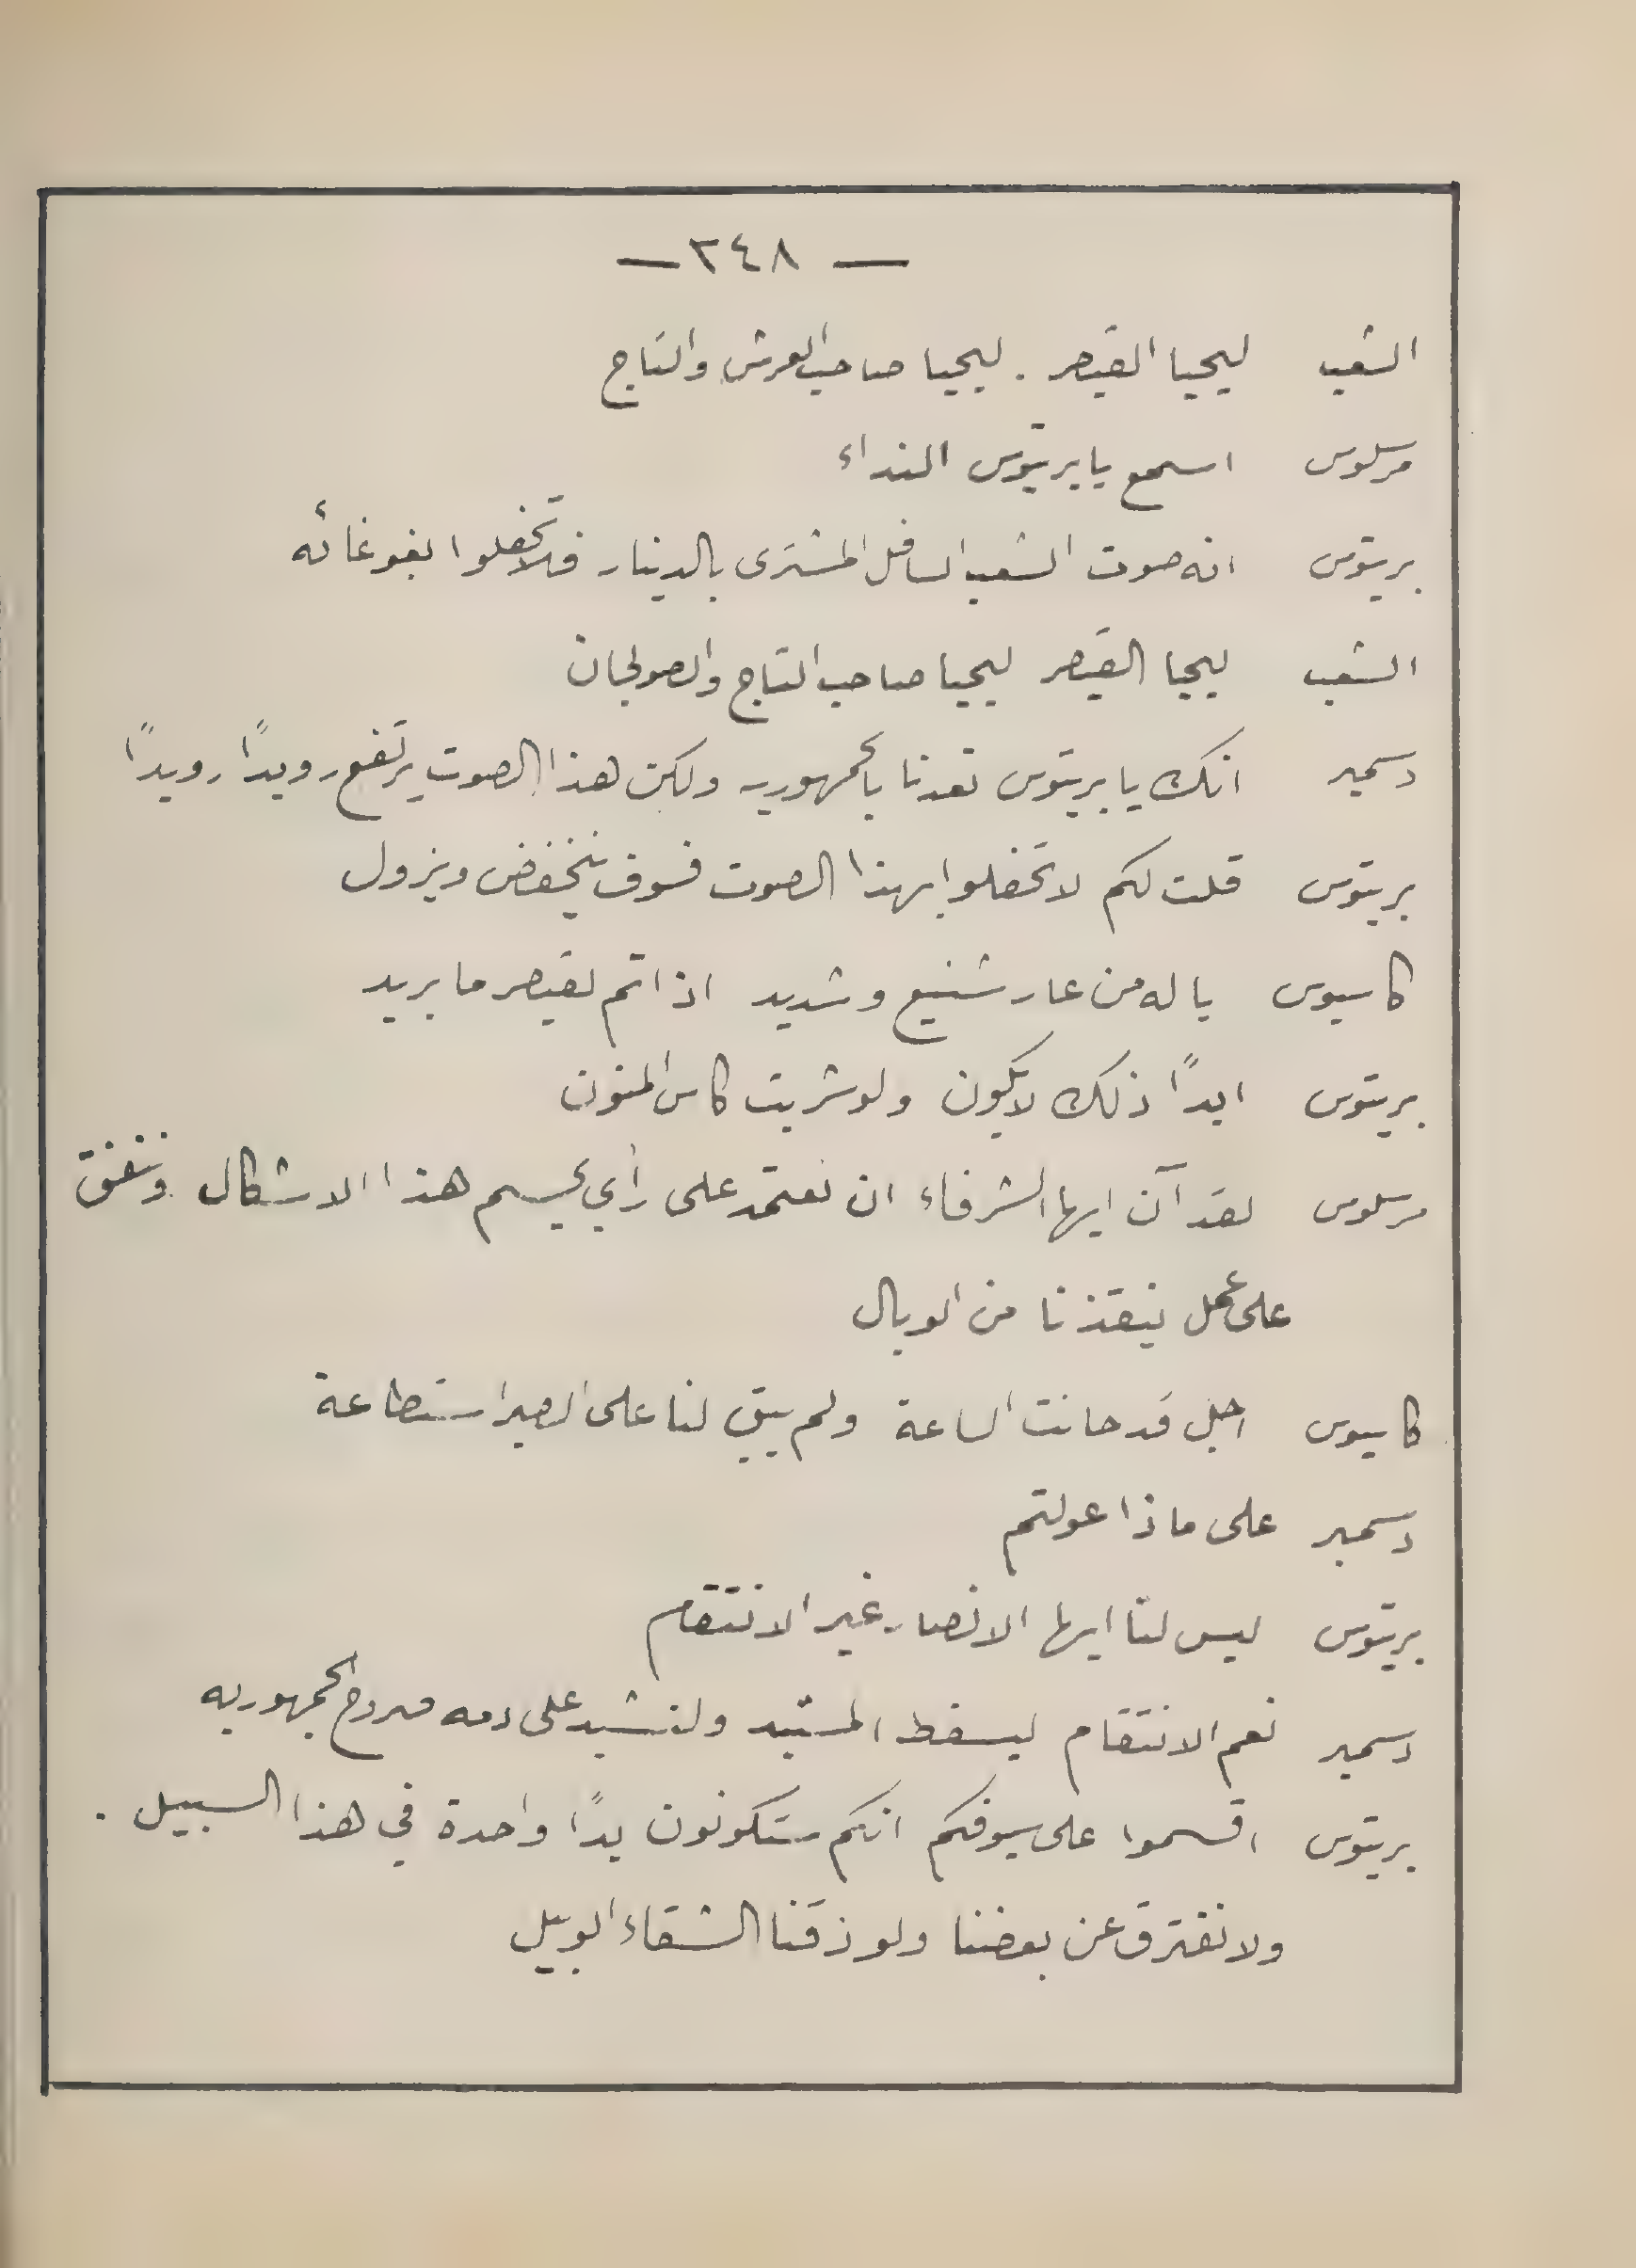 — ٢٤٨ —
الشعب ليحيا القيصر . ليحيا صاحب العرش والتاج
مرسلوس اسمع يا بريتوس النداء
بريتوس انه صوت الشعب السافل المشترى بالدينار فلا تحفلوا بغوغائه
الشعب ليحيا القيصر ليحيا صاحب التاج والصولجان
دسمبر انك يا بريتوس تعدنا بالجمهوريه ولكن هذا الصوت يرتفع رويداً رويداً
بريتوس قلت لكم لا تحفلوا بهذا الصوت فسوف ينخفض ويزول
كاسيوس يا له من عار شنيع وشديد اذا تم لقيصر ما يريد
بريتوس ابداً ذلك لا يكون ولو شربت كاس المنون
مرسلوس لقد آن ايها الشرفاء ان نعتمد على رأي يحسم هذا الاشكال ونتفق
على عمل ينقذنا من الوبال
كاسيوس اجل قد حانت الساعة ولم يبق لنا على الصبر استطاعة
دسمبر على ماذا عولتم
بريتوس ليس لنا ايها الانصار غير الانتقام
دسمبر نعم الانتقام ليسقط المستبد ولنشيد على دمه صروح الجمهوريه
بريتوس اقسموا على سيوفكم انكم ستكونون يداً واحدة في هذا السبيل .
ولا نفترق عن بعضنا ولو ذقنا الشقاء الوبيل